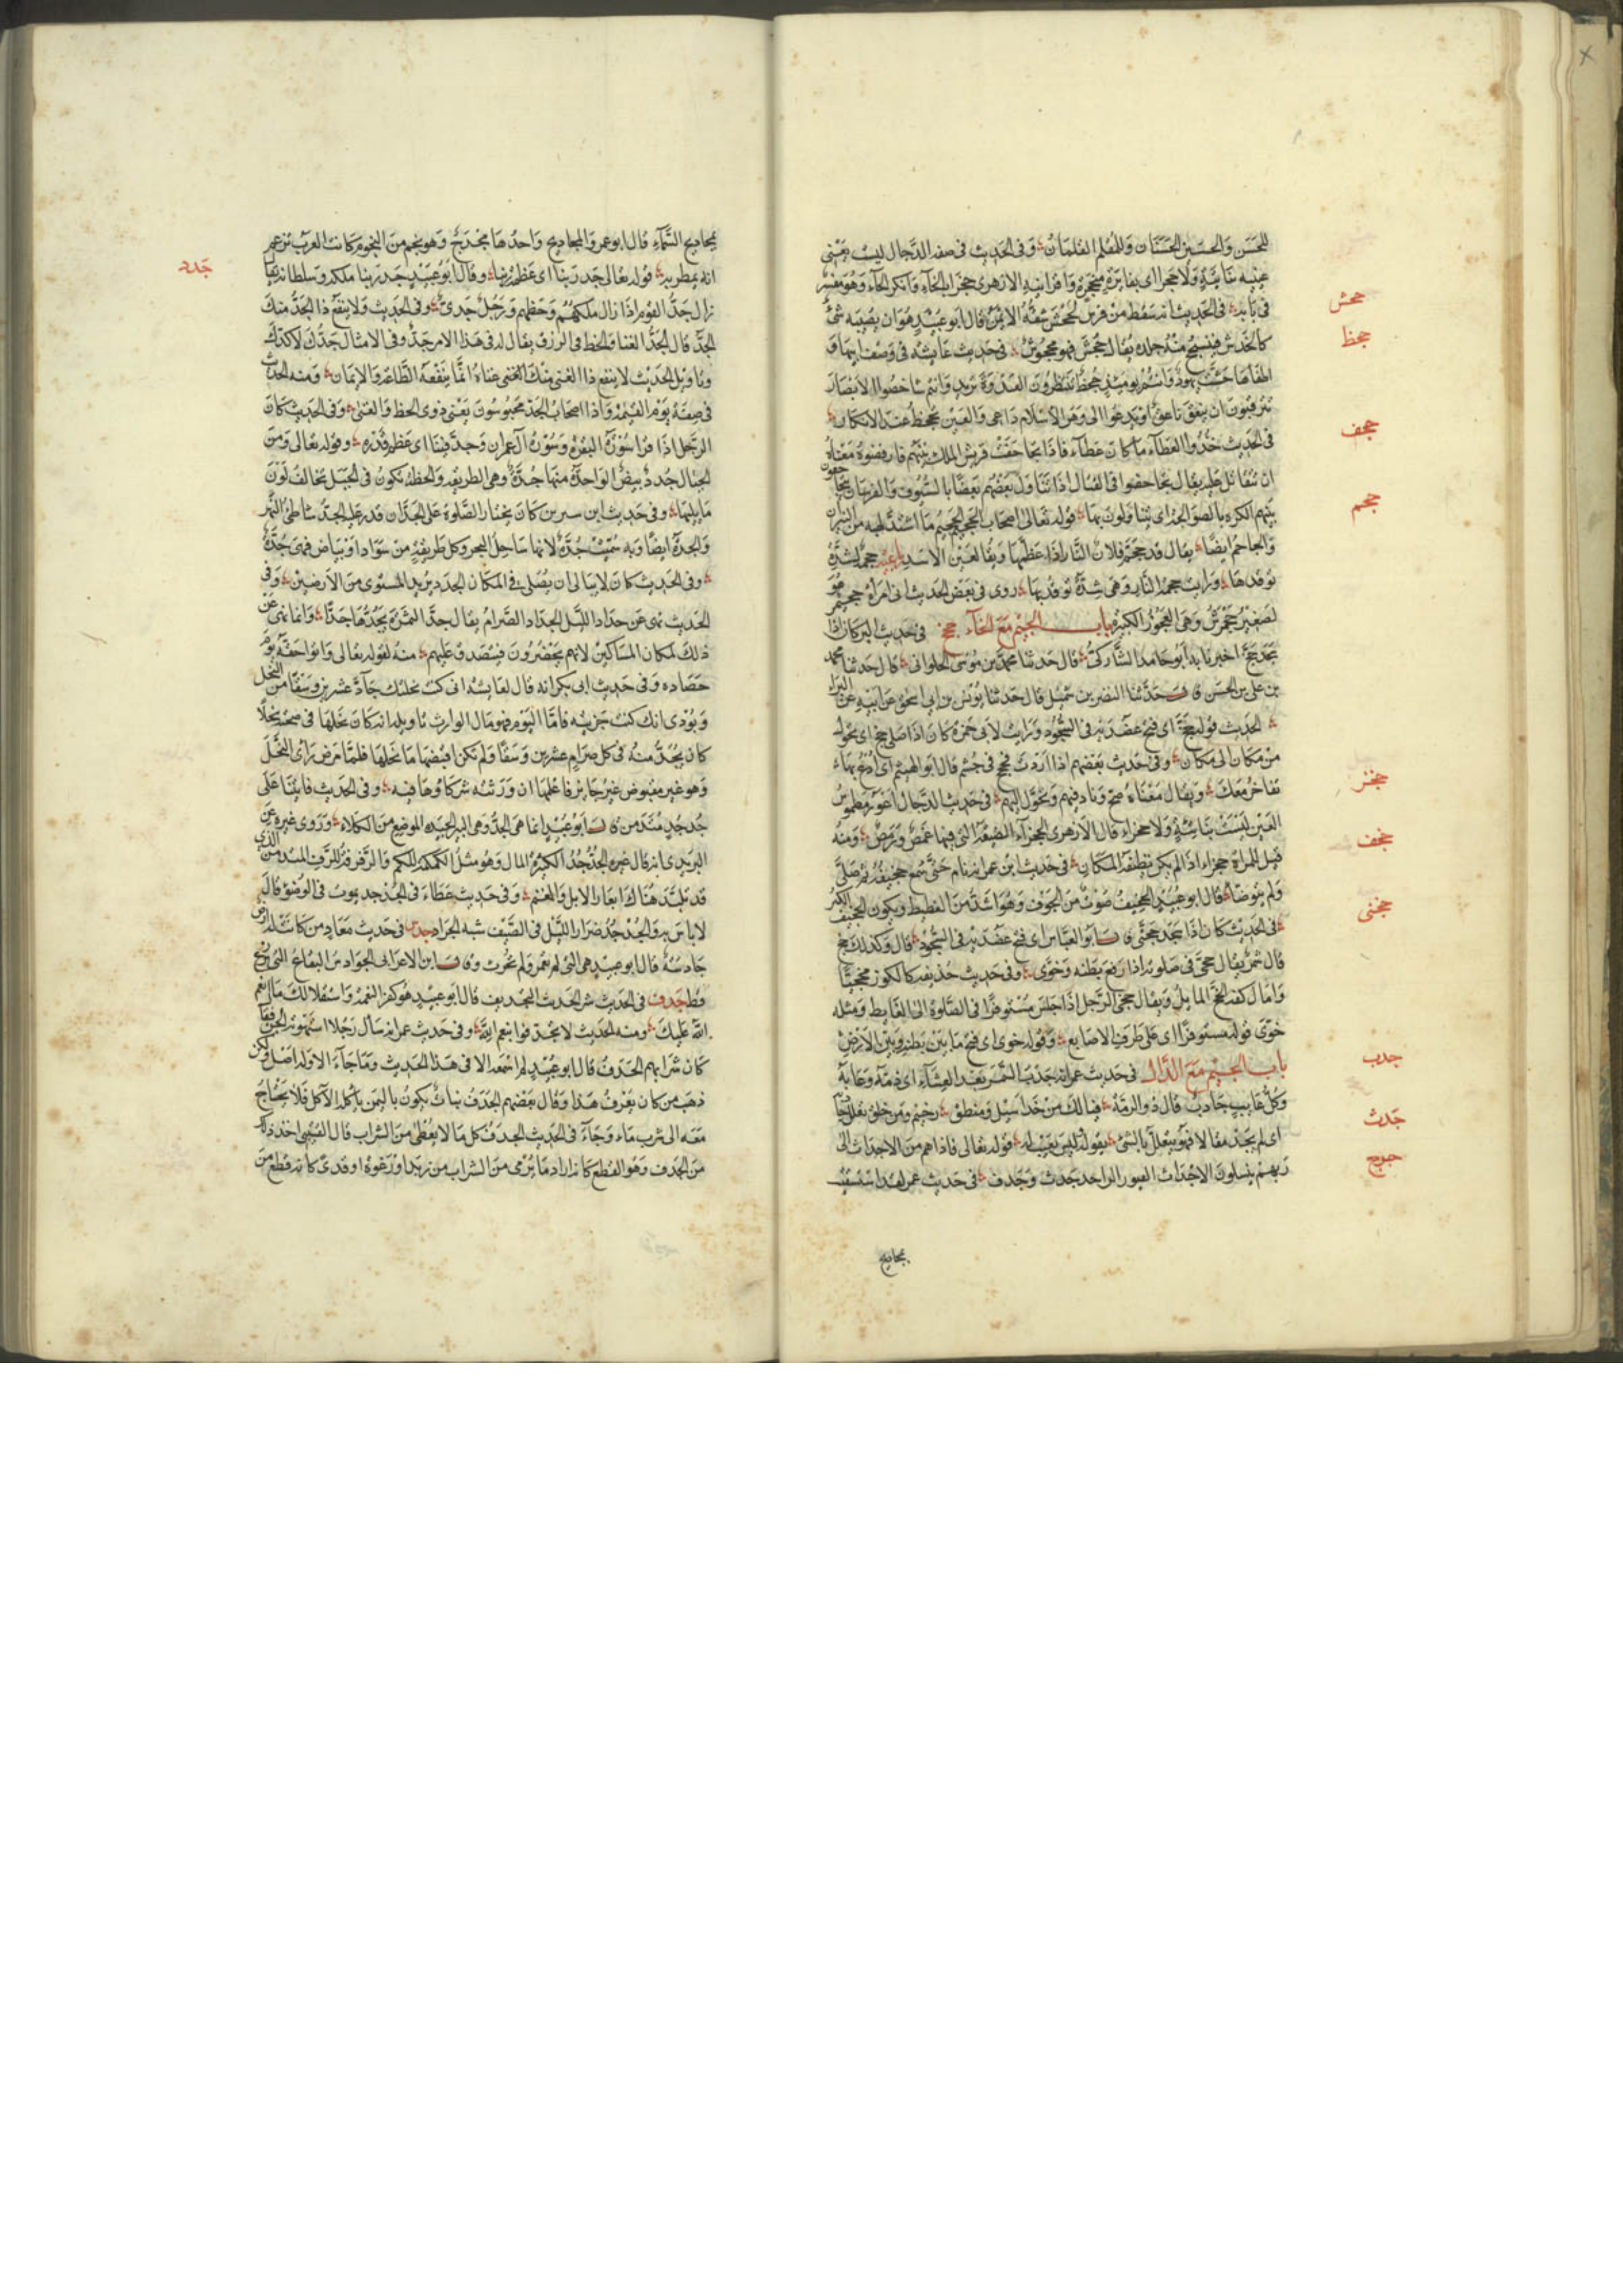 للحسن والحسين الحسنان وللقلم القلمان وفي الحديث في صفة الدجال ليست
عينه بناتية ولا حجرا اي بغائرة منجحرة واقرأنيه الازهري جخراء بالخاء وانكر الحاء وهو مفسر
في بابه في الحديث انه سقط من فرس فجحش شقه الايمن قال ابو عبيد هو ان يصيبه شئ
كالخدش فينسحج منه جلده يقال جحش فهو مجحوش في حديث عايشة في وصف ابيها
وانتم يومئذ جحظ تنتظرون العدوة تريد وانتم شاخصوا الابصار
تترقبون ان ينعق ناعق او يدعوا الى وهن الاسلام داعي والعين تجحظ عند الانكار
في الحديث خذوا العطاء ما كان عطاء فاذا تجاحفت قريش الملك بينهم فارفضوه معناه
ان تقاتل عليه يقال تجاحفوا في القتال اذا تناول بعضهم بعضا بالسيوف والفريقان يتجاحفون
بينهم الكرة بالصوالجة اي يتناولون بها قوله تعالى اصحاب الجحيم الجحيم ما اشتد لهبه من النيران
والجاحم ايضا يقال قد جحم فلان النار اذا عظمها ويقال لعين الاسد جحمة لشدة
توقدها ورايت جحمة النار وهي شدة توقدها روي في بعض الحديث اني امراة جحيمر هو
تصغير جحمرش وهي العجوز الكبيرة باب الجيم مع الخاء جخ في حديث البراء كان اذا
سجد جخ اخبرنا به ابو حامد الشاركي قال حدثنا محمد بن موسى الحلواني قال حدثنا محمد
بن علي بن الحسن قال حدثنا النضر بن شميل قال حدثنا يونس بن ابي اسحق عن ابيه عن البراء
الحديث قوله جخ اي فتح عضديه في السجود ورايت لابي حمزة كان اذا صلى جخ اي تحول
من مكان الى مكان وفي حديث بعضهم اذا اردت فجخ في جشم قال ابو الهيثم اي ادع بها
تفاخر معك ويقال معناه صح وناد فيهم وتحول اليهم في حديث الدجال اعور مطموس
العين ليست بناتئة ولا جخراء قال الازهري الجخراء الضيقة التي فيها غمص ورمص ومنه
قيل للمراة جخراء اذا لم يكن نظيفة المكان في حديث ابن عمر انه نام حتى سمع جخيفه ثم صلى
ولم يتوضا قال ابو عبيد الجخيف صوت من الجوف وهو اشد من الغطيط ويكون الجخيف الكبر
في الحديث كان اذا سجد جخى قال ابو العباس اي فتح عضديه في السجود قال وكذلك جخ
قال شمر يقال جخى في صلوته اذا رفع بطنه وخوى وفي حديث حذيفة كالكوز مجخيا
وامال كفه المجخي المايل ويقال جخى الرجل اذا جلس مستوفزا في الصلوة الى الغايط ومثله
خوى قوله مستوفزا اي على طرف الاصابع وقوله خوى اي فتح ما بين بطنه وبين الارض
باب الجيم مع الدال في حديث عمر انه جدب السمر بعد العشاء اي ذمه وعابه
وكل عايب جادب قال ذو الرمة فيا لك من خد اسيل ومنطق رخيم ومن خلق تعلل جادبه
اي لم يجد مقالا فهو يتعلل بالشئ يقوله وليس بعيب له قوله تعالى فاذا هم من الاجداث الى
ربهم ينسلون الاجداث القبور الواحد جدث وجدف في حديث عمر لقد استسقيت
بمجاديح
جحش
جحظ
جحف
جحم
جخر
جخف
جخى
جدب
جدث
جدح
بمجاديح السماء قال ابو عمرو المجاديح واحدها مجدح وهو نجم من النجوم كانت العرب تزعم
انه يمطر به قوله تعالى جد ربنا اي عظمة ربنا وقال ابو عبيد جد ربنا ملكه وسلطانه يقال
زال جد القوم اذا زال ملكهم وحظهم ورجل جدي وفي الحديث ولا ينفع ذا الجد منك
الجد قال الجد الغنا والحظ في الرزق يقال له في هذا الامر جد وفي الامثال جدك لا كدك
وتاويل الحديث لا ينفع ذا الغنى منك الغنى غناه انما ينفعه الطاعة والايمان ومنه الحديث
في صفة يوم القيمة واذا اصحاب الجد محبوسون يعني ذوي الحظ والغنى وفي الحديث كان
الرجل اذا قرا سورة البقرة وسورة آل عمران جد فينا اي عظم قدره وقوله تعالى ومن
الجبال جدد بيض الواحدة منها جدة وهي الطريقة والخطة تكون في الجبل تخالف لون
ما يليها وفي حديث ابن سيرين كان يختار الصلوة على الجد ان قدر عليه الجد شاطئ النهر
والجدة ايضا وبه سميت جدة لانها ساحل البحر وكل طريقة من سواد او بياض فهي جدة
وفي الحديث كان لا يبالي ان يصلي في المكان الجدد يريد المستوي من الارضين وفي
الحديث نهى عن جداد الليل الجداد الصرام يقال جد الثمرة يجدها جدا وانما نهى عن
ذلك لمكان المساكين لانهم يحضرون فيتصدق عليهم منه لقوله تعالى وآتوا حقه يوم
حصاده وفي حديث ابي بكر انه قال لعايشة اني كنت نحلتك جاد عشرين وسقا من النخل
وبودي انك كنت حزتيه فاما اليوم فهو مال الوارث تاويله انه كان نحلها في صحته نخلا
كان يجد منه في كل صرام عشرين وسقا ولم تكن اقبضها ما نحلها فلما مرض راى النخل
وهو غير مقبوض غير جايز فاعلمها ان ورثته شركاؤها فيه وفي الحديث فاتينا على
جدجد متدمن قال ابو عبيد انما هي الجد وهي البئر الجيدة الموضع من الكلاء وروى غيره عن
اليزيدي انه قال غيره الجدجد الكثيرة المال وهو مثل الكمكمة للكم والرفرفة للرف المتدمن الذي
قد تلبد هناك ابعار الابل والغنم وفي حديث عطاء في الجدجد يموت في الوضوء قال
لا باس به والجدجد ضرار الليل في الصيف شبه الجراد جدس في حديث معاذ من كانت له ارض
جادسة قال ابو عبيد هي التي لم تعمر ولم تحرث وقال ابن الاعرابي الجوادس البقاع التي لم تزرع
قط جدف في الحديث شر الحديث التجديف قال ابو عبيد هو كفر النعمة واستقلالك ما انعم
الله عليك ومنه الحديث لا تجدفوا بنعم الله وفي حديث عمر انه سال رجلا استهوته الجن
كان شرابهم الجدف قال ابو عبيد لم اسمعه الا في هذا الحديث وما جاء الا وله اصل ولكن
ذهب من كان يعرف هذا وقال بعضهم الجدف نبات يكون باليمن ياكله الآكل فلا يحتاج
معه الى شرب ماء وجاء في الحديث الجدف كل ما لا يغطى من الشراب قال القتيبي اخذ ذلك
من الجدف وهو القطع كانه اراد ما يرمى من الشراب من زبد او رغوة او قذى كانه قطع من
جدد